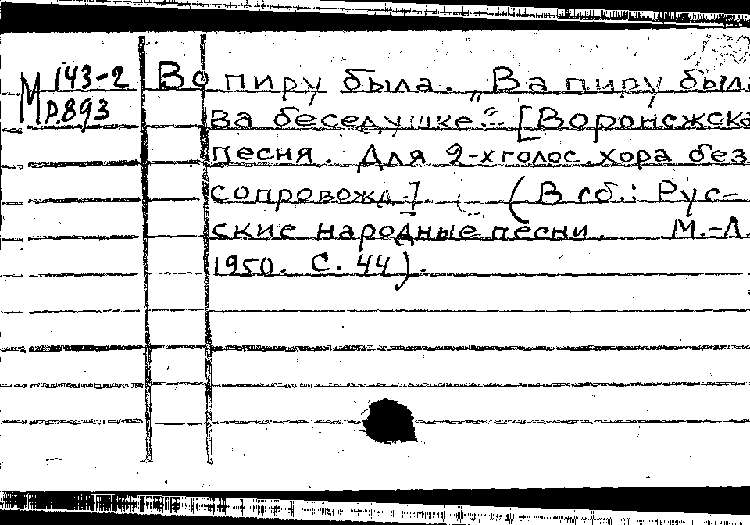 М 143-2
Р893
Во пиру была. „Ва пиру был
ва беседушке." [Воронежска
песня. Для 2-х голос. хора без
сопровожд.] (В сб.: Рус-
ские народные песни. М.-Л.
1950. С. 44).